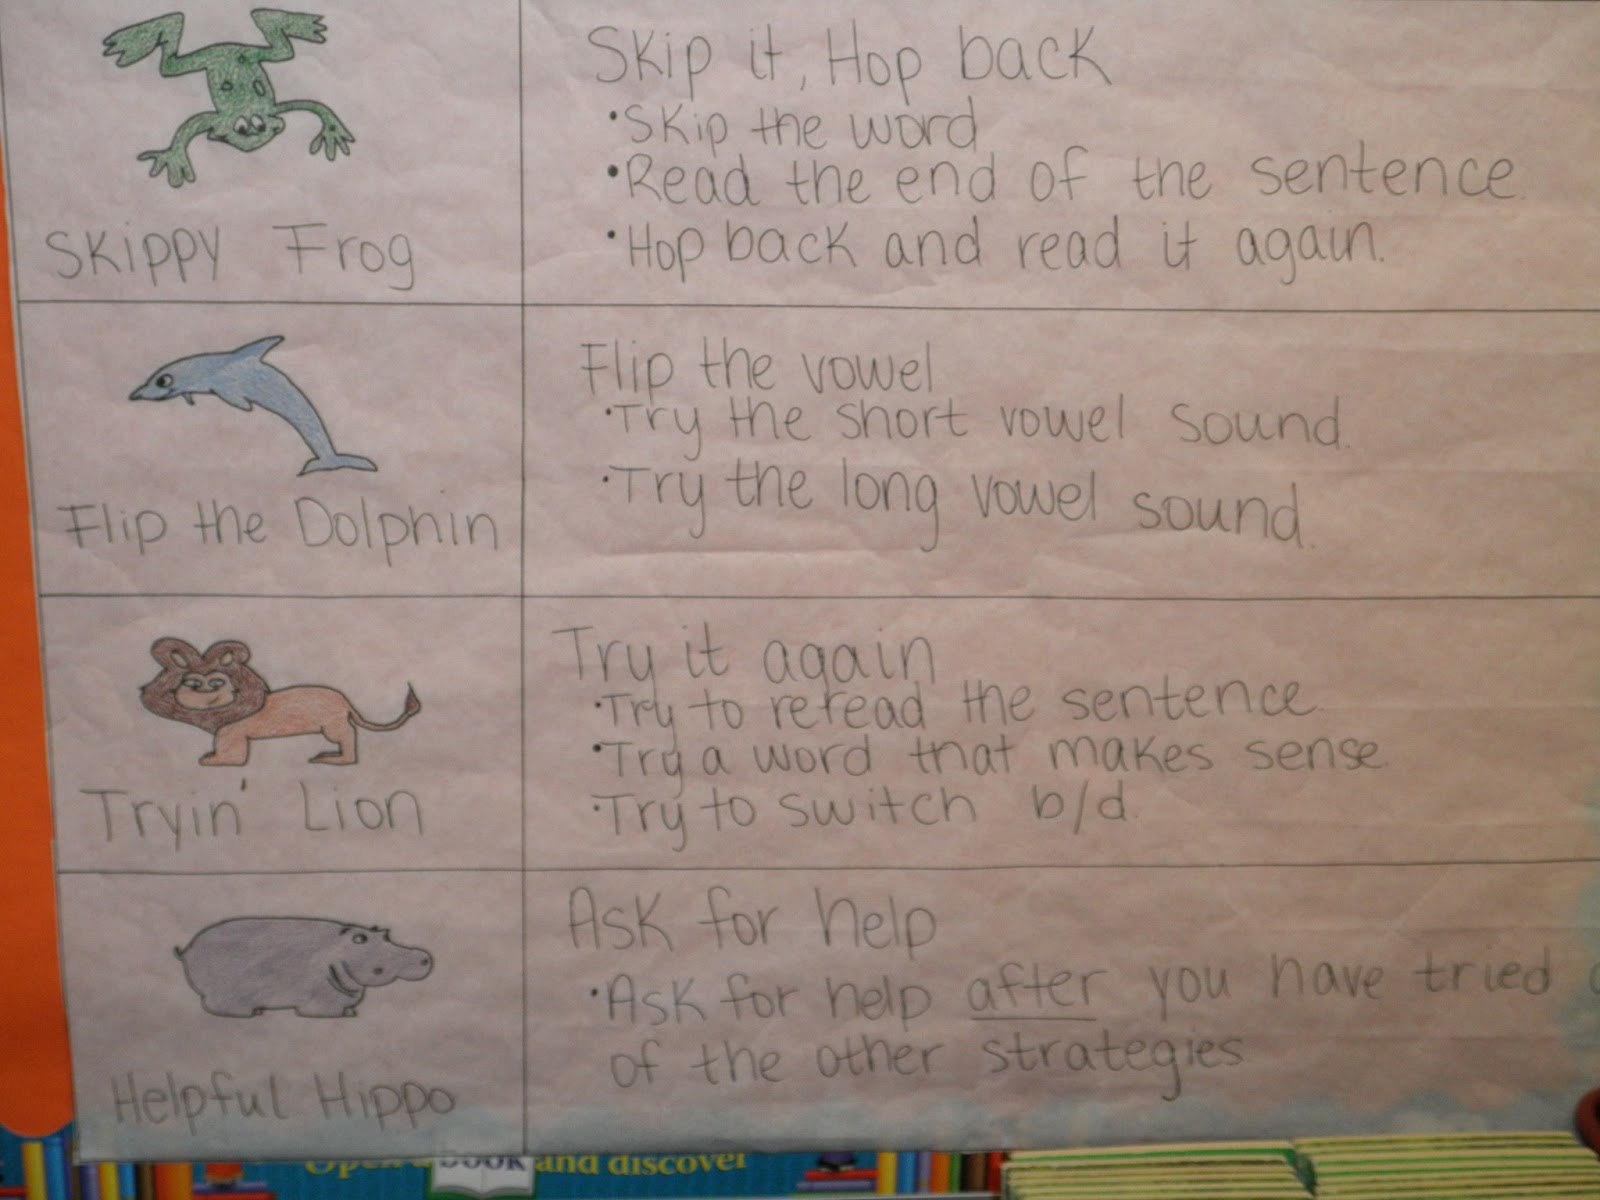 Skip it, Hop back
•Skip the word
•Read the end of the sentence.
•Hop back and read it again.
Skippy Frog
Flip the vowel
•Try the short vowel sound.
•Try the long vowel sound.
Flip the Dolphin
Try it again
•Try to reread the sentence.
•Try a word that makes sense
•Try to switch b/d.
Tryin' Lion
Ask for help
•Ask for help after you have tried
of the other strategies
Helpful Hippo
Open a book and discover